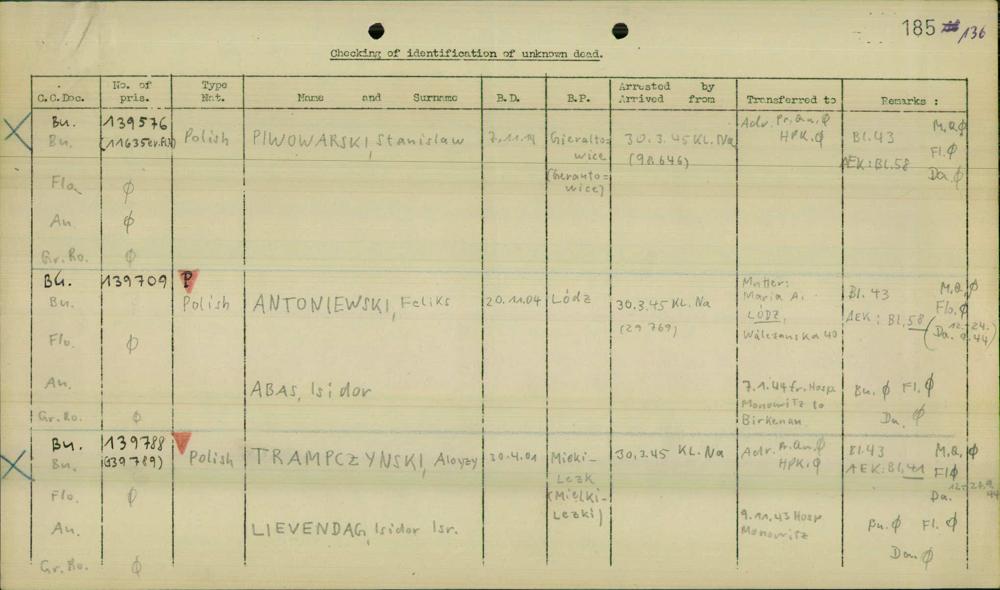 185 136
Checking of identification of unknown dead.
C.C.Doc. No. of pris. Type Nat. Name and Surname B.D. B.P. Arrested by Arrived from Transferred to Remarks :
Bu. 139576 Adr. Pr. an. Ø M.Q Ø
Bu. Polish PIWOWARSKI, Stanislaw Gieralto= 30.3.45 KL. Na HPK. Ø Bl. 43
wice (98.646) Fl. Ø
AEK: Bl. 58
Fla Ø wice) Da. Ø
An. Ø
Gr. Ro. Ø
Bu. 139709 P Mutter: M.Q. Ø
Bu. Polish ANTONIEWSKI, Feliks 20.11.04 Lódz 30.3.45 KL. Na Maria A. Bl. 43
LÓDZ, Flo. Ø
(29 769) AEK: Bl. 58
Flo. Ø Wólczanska 40 Da.
An. ABAS, Isidor 7.1.44 fr. Hosp. Bu. Ø Fl. Ø
Monowitz to
Gr. Ro. Ø Birkenau Da. Ø
Bu. 139788 Adr. Pr. an. Ø Bl. 43 M.Q. Ø
Bu. (139789) Polish TRAMPCZYNSKI, Aloyzy 30.4.01 Mielki- 30.3.45 KL. Na HPK. Ø AEK: Bl. 41 Fl Ø
Flo. Ø (Mielki- Da.
Lezki)
An. LIEVENDAG, Isidor Isr. 9.11.43 Hosp Bu. Ø Fl. Ø
Monowitz
Gr. Ro. Ø Da. Ø